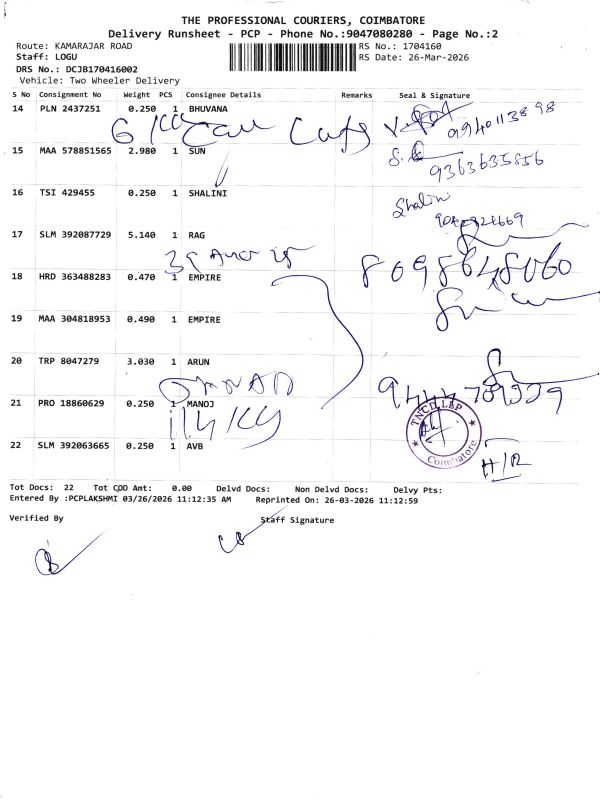 THE PROFESSIONAL COURIERS, COIMBATORE
Delivery Runsheet - PCP - Phone No.:9047080280 - Page No.:2
Route: KAMARAJAR ROAD
RS No.: 1704160
Staff: LOGU
RS Date: 26-Mar-2026
DRS No.: DCJB170416002
Vehicle: Two Wheeler Delivery
S No Consignment No Weight PCS Consignee Details Remarks Seal & Signature
14 PLN 2437251 0.250 1 BHUVANA
15 MAA 578851565 2.980 1 SUN
9363635856
16 TSI 429455 0.250 1 SHALINI
Shalini
17 SLM 392087729 5.140 1 RAG
8098648060
18 HRD 363488283 0.470 1 EMPIRE
19 MAA 304818953 0.490 1 EMPIRE
20 TRP 8047279 3.030 1 ARUN
21 PRO 18860629 0.250 1 MANOJ
TNCD LLP
Coimbatore
22 SLM 392063665 0.250 1 AVB
H/R
Tot Docs: 22 Tot COD Amt: 0.00 Delvd Docs: Non Delvd Docs: Delvy Pts:
Entered By :PCPLAKSHMI 03/26/2026 11:12:35 AM Reprinted On: 26-03-2026 11:12:59
Verified By
Staff Signature